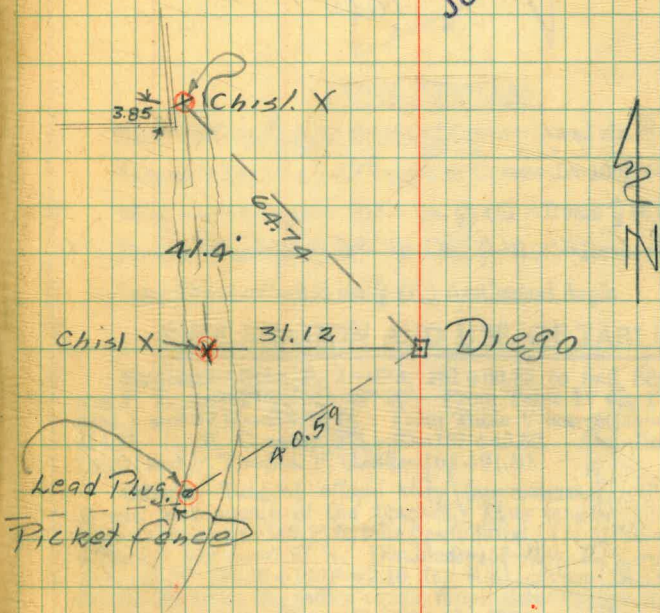 Chisl. X
3.85
64.74
41.4'
Chisl X.
31.12
Diego
40.59
Lead Plug.
Picket fence
N